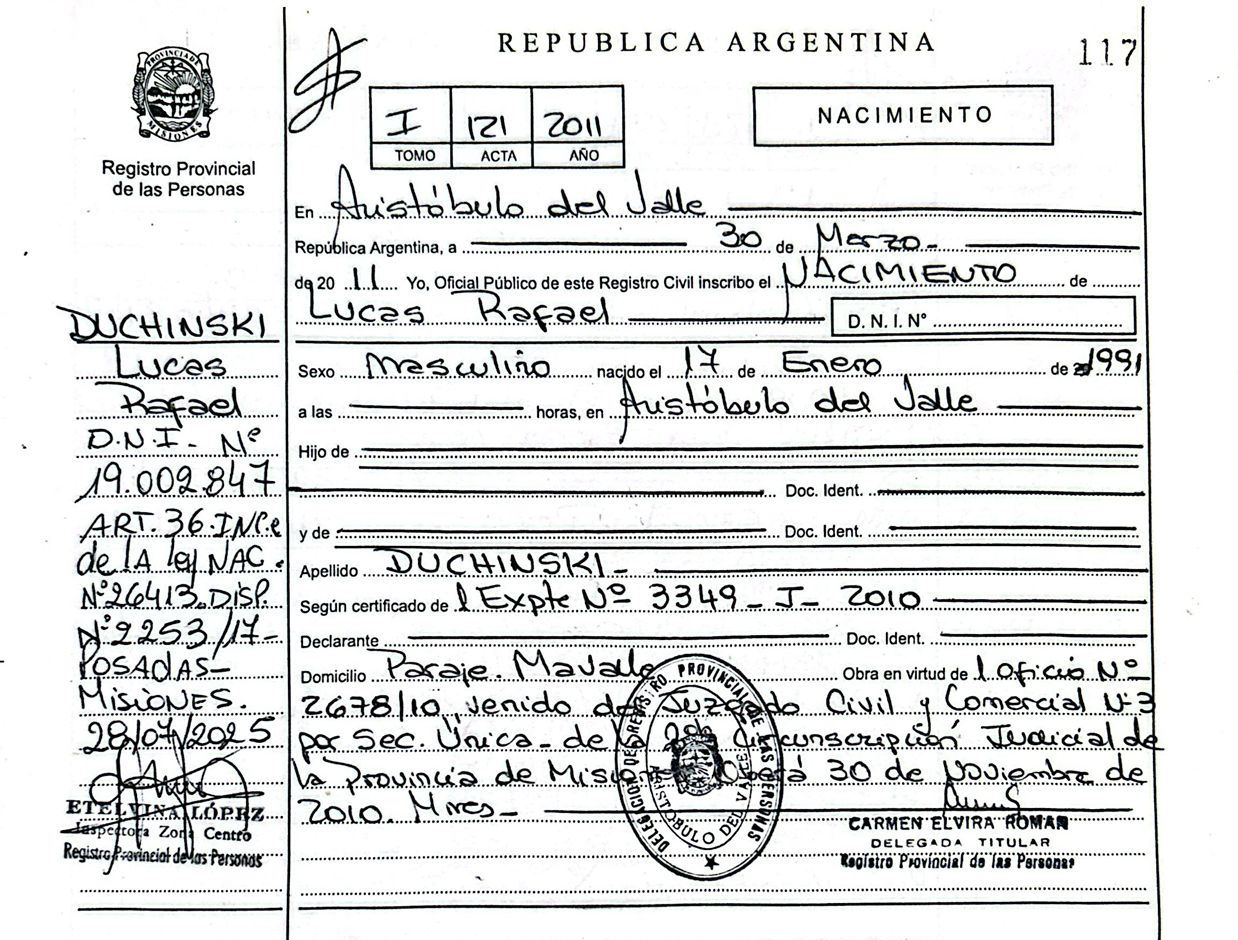 REPUBLICA ARGENTINA
117
PROVINCIA DE
MISIONES
Registro Provincial
de las Personas
I 121 2011
TOMO ACTA AÑO
NACIMIENTO
En Aristóbulo del Valle
República Argentina, a 30 de Marzo-
de 20 11 Yo, Oficial Público de este Registro Civil inscribo el NACIMIENTO de
Lucas Rafael D.N.I. Nº
Sexo Masculino nacido el 17 de Enero de 1991
a las horas, en Aristóbulo del Valle
Hijo de
Doc. Ident.
y de Doc. Ident.
Apellido DUCHINSKI-
Según certificado de l Expte Nº 3349-I-2010
Declarante Doc. Ident.
Domicilio Paraje. Obra en virtud de l oficio Nº
2678/10 venido del Juzgado Civil y Comercial Nº3
por Sec. Única- de la 2da Circunscripción Judicial de
la Provincia de Misiones 30 de Noviembre de
2010.
DELEGACION DEL REGISTRO PROVINCIAL DE LAS PERSONAS
ARISTOBULO DEL VALLE
CARMEN ELVIRA ROMAN
DELEGADA TITULAR
Registro Provincial de las Personas
DUCHINSKI
Lucas
Rafael
D.N.I- Nº
19.002.847
ART.36.INC.c
de lA ley NAC.
Nº26413.DISP.
Nº2253/17-
POSADAS-
MISIONES.
28/07/2025
ETELVINA LÓPEZ
Inspectora Zona Centro
Registro Provincial de las Personas